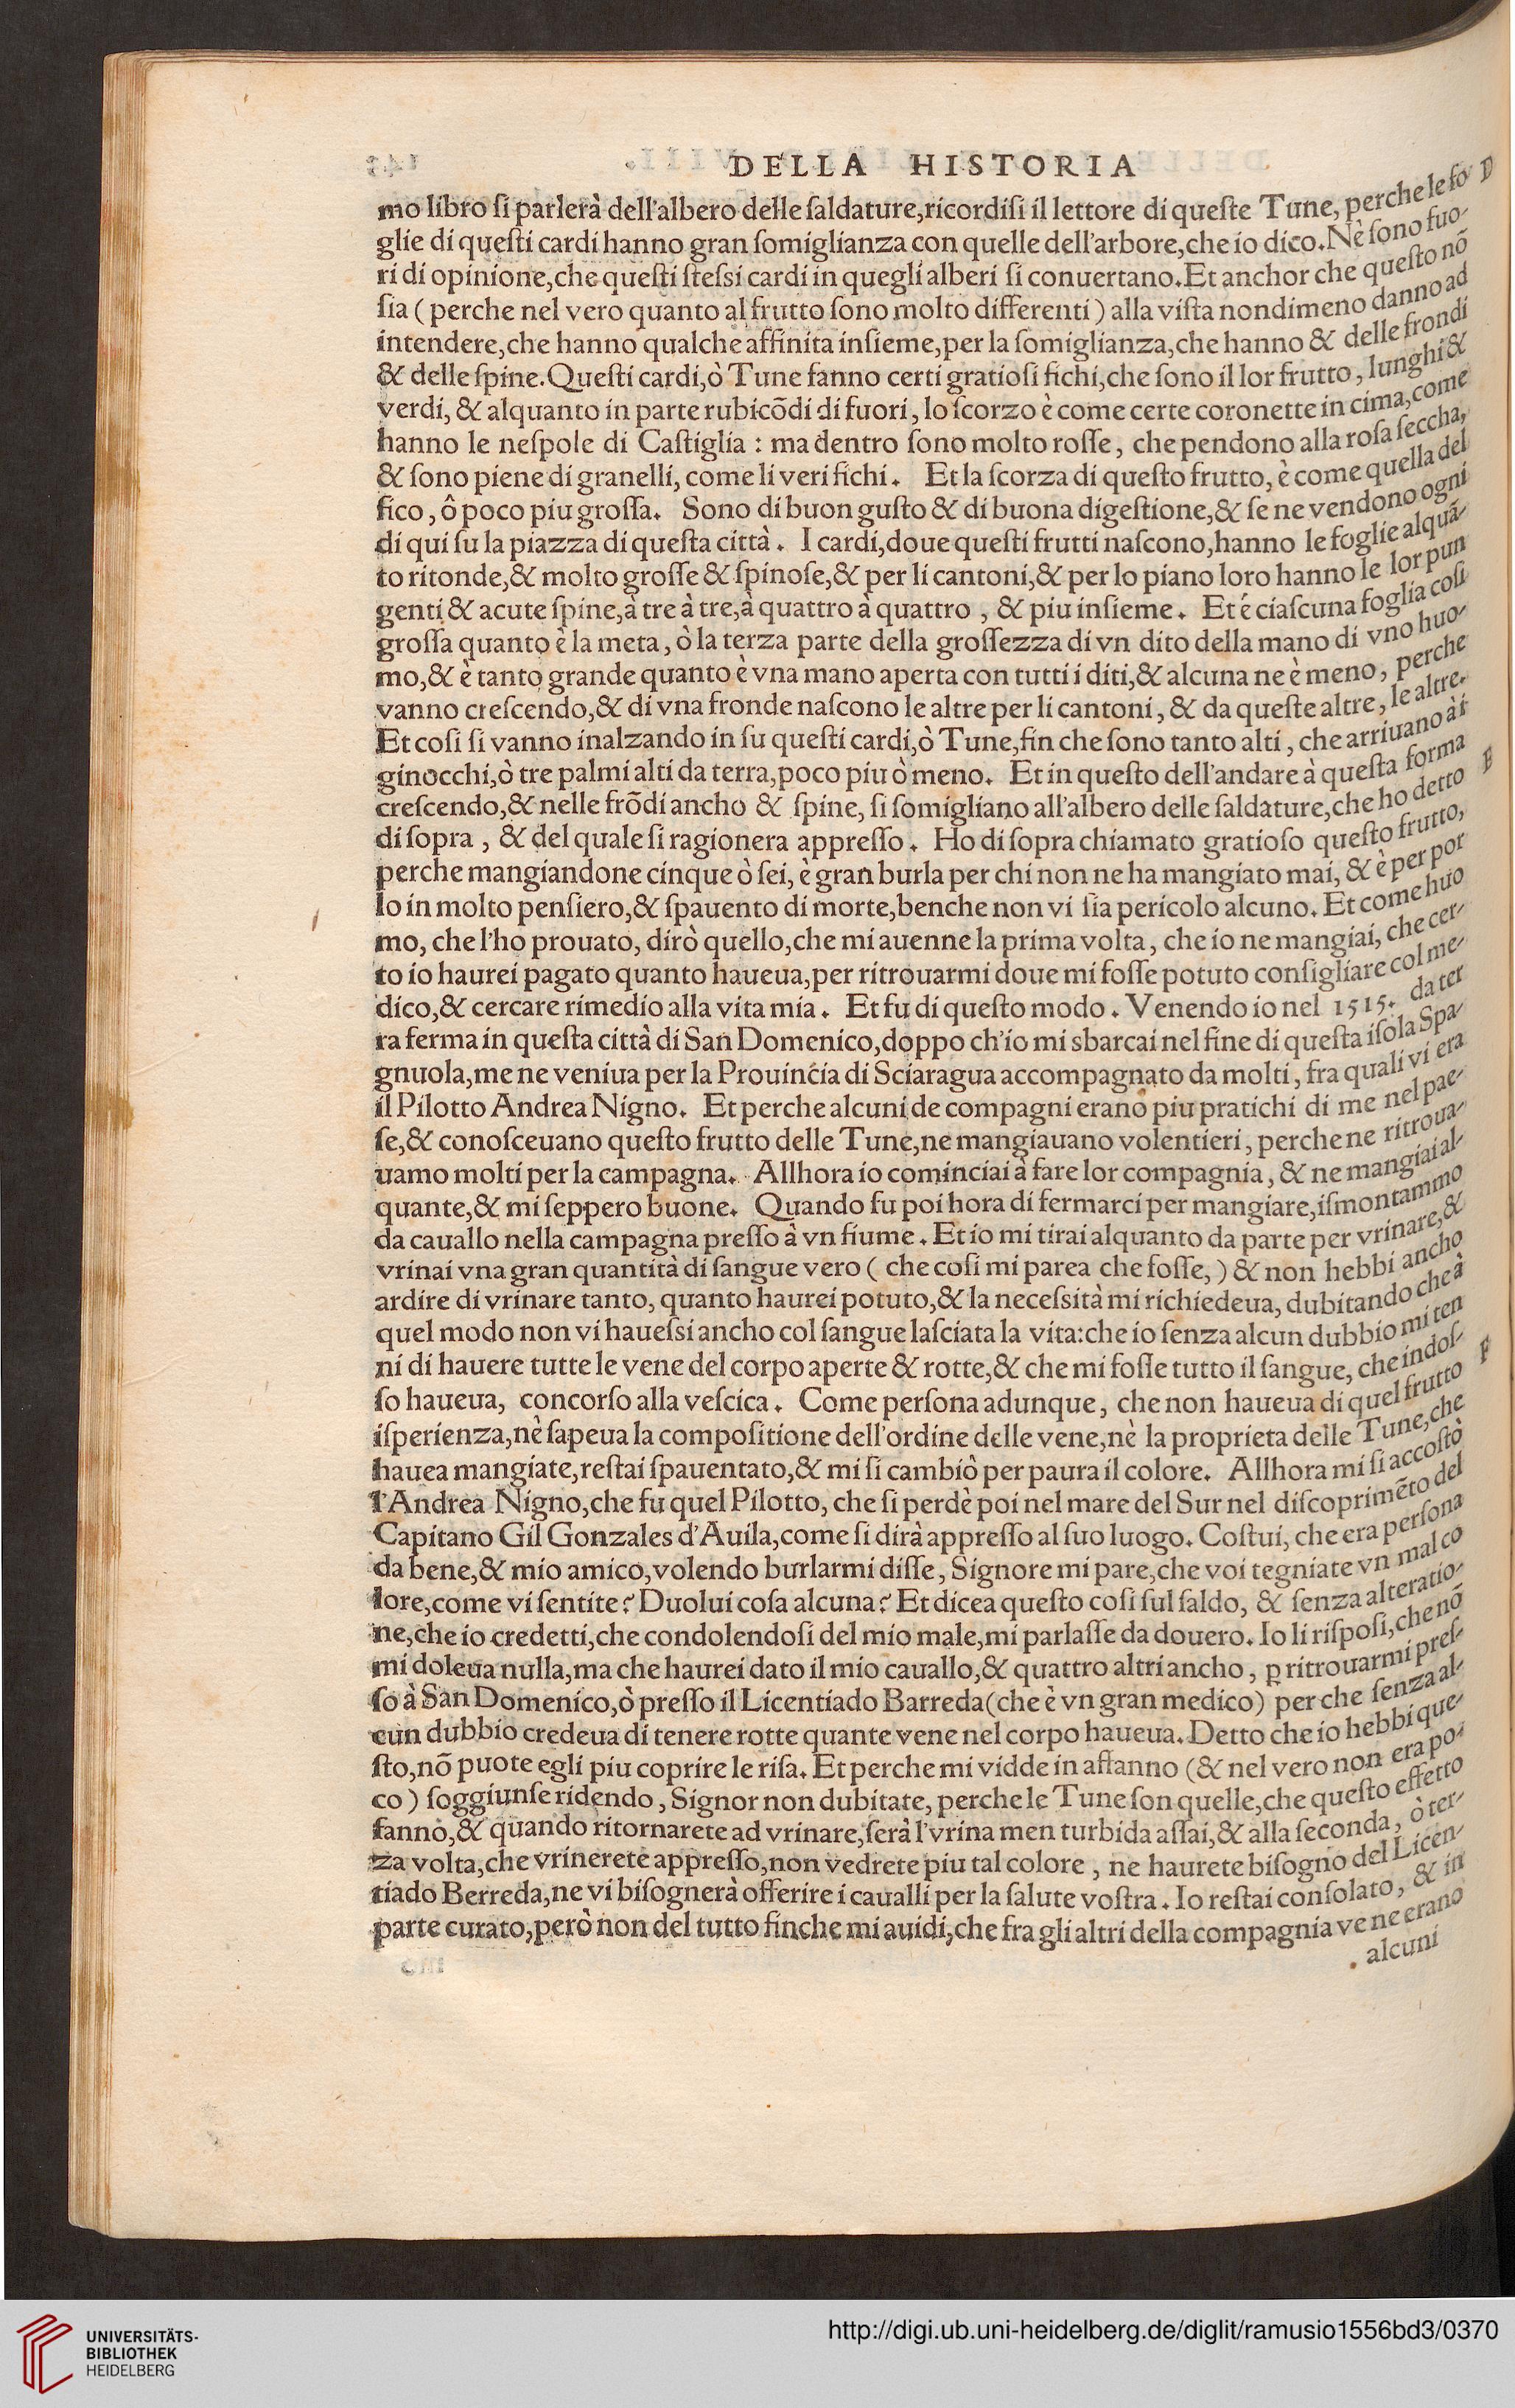 DELLA HISTORIA
mo libro ſi parlerà dell'albero delle ſaldature,ricordiſi il lettore di queſte Tune, perche le fo D
glie di queſti cardi hanno gran ſomiglianza con quelle dell'arbore,che io dico.Nè ſono fuo-
ri di opinione,che queſti ſteſsi cardi in quegli alberi ſi conuertano.Et anchor che queſto nõ
ſia ( perche nel vero quanto al frutto ſono molto differenti ) alla viſta nondimeno danno ad
intendere,che hanno qualche affinita inſieme,per la ſomiglianza,che hanno & delle frondi
& delle ſpine.Queſti cardi,ò Tune fanno certi gratioſi fichi,che ſono il lor frutto , lunghi &
verdi, & alquanto in parte rubicõdi di fuori, lo ſcorzo è come certe coronette in cima,come
hanno le neſpole di Caſtiglia : ma dentro ſono molto roſſe, che pendono alla roſa ſeccha,
& ſono piene di granelli, come li veri fichi. Et la ſcorza di queſto frutto, è come quella del
fico, ô poco piu groſſa. Sono di buon guſto & di buona digeſtione,& ſe ne vendono ogni
di qui ſu la piazza di queſta città. I cardi,doue queſti frutti naſcono,hanno le foglie alquã-
to ritonde,& molto groſſe & ſpinoſe,& per li cantoni,& per lo piano loro hanno le lor pun
genti & acute ſpine,à tre à tre,à quattro à quattro , & piu inſieme. Et é ciaſcuna foglia coſi
groſſa quanto è la meta, ò la terza parte della groſſezza di vn dito della mano di vno huo-
mo,& è tanto grande quanto è vna mano aperta con tutti i diti,& alcuna ne è meno, perche
vanno creſcendo,& di vna fronde naſcono le altre per li cantoni, & da queſte altre, le altre.
Et coſi ſi vanno inalzando in ſu queſti cardi,ò Tune,fin che ſono tanto alti , che arriuano à i
ginocchi,ò tre palmi alti da terra,poco piu ò meno. Et in queſto dell'andare à queſta forma E
creſcendo,& nelle frõdi ancho & ſpine, ſi ſomigliano all'albero delle ſaldature,che ho detto
di ſopra , & del quale ſi ragionera appreſſo. Ho di ſopra chiamato gratioſo queſto frutto,
perche mangiandone cinque ò ſei, è gran burla per chi non ne ha mangiato mai, & è per por
lo in molto penſiero,& ſpauento di morte,benche non vi ſia pericolo alcuno. Et come huo
mo, che l'ho prouato, dirò quello,che mi auenne la prima volta, che io ne mangiai, che cer-
to io haurei pagato quanto haueua,per ritrouarmi doue mi foſſe potuto conſigliare col me-
dico,& cercare rimedio alla vita mia. Et fu di queſto modo. Venendo io nel 1515. da ter
ra ferma in queſta città di San Domenico,doppo ch'io mi sbarcai nel fine di queſta iſola Spa-
gnuola,me ne veniua per la Prouincia di Sciaragua accompagnato da molti, fra quali vi era
il Pilotto Andrea Nigno. Et perche alcuni de compagni erano piu pratichi di me nel pae-
ſe,& conoſceuano queſto frutto delle Tune,ne mangiauano volentieri, perche ne ritroua-
uamo molti per la campagna. Allhora io cominciai à fare lor compagnia, & ne mangiai al-
quante,& mi ſeppero buone. Quando fu poi hora di fermarci per mangiare,iſmontammo
da cauallo nella campagna preſſo à vn fiume. Et io mi tirai alquanto da parte per vrinare,&
vrinai vna gran quantità di ſangue vero ( che coſi mi parea che foſſe, ) & non hebbi ancho
ardire di vrinare tanto, quanto haurei potuto,& la neceſsità mi richiedeua, dubitando che à
quel modo non vi haueſsi ancho col ſangue laſciata la vita:che io ſenza alcun dubbio mi ten
ni di hauere tutte le vene del corpo aperte & rotte,& che mi foſſe tutto il ſangue, che indoſ- F
ſo haueua, concorſo alla veſcica. Come perſona adunque, che non haueua di quel frutto
iſperienza,nè ſapeua la compoſitione dell'ordine delle vene,nè la proprieta delle Tune,che
hauea mangiate,reſtai ſpauentato,& mi ſi cambiò per paura il colore. Allhora mi ſi accoſtò
l'Andrea Nigno,che fu quel Pilotto, che ſi perdè poi nel mare del Sur nel diſcoprimẽto del
Capitano Gil Gonzales d'Auila,come ſi dirà appreſſo al ſuo luogo. Coſtui, che era perſona
da bene,& mio amico,volendo burlarmi diſſe, Signore mi pare,che voi tegniate vn mal co
lore,come vi ſentite? Duolui coſa alcuna? Et dicea queſto coſi ſul ſaldo, & ſenza alteratio-
ne,che io credetti,che condolendoſi del mio male,mi parlaſſe da douero. Io li riſpoſi,che nõ
mi doleua nulla,ma che haurei dato il mio cauallo,& quattro altri ancho, ꝑ ritrouarmi preſ-
ſo à San Domenico,ò preſſo il Licentiado Barreda(che è vn gran medico) per che ſenza al-
cun dubbio credeua di tenere rotte quante vene nel corpo haueua.Detto che io hebbi que-
ſto,nõ puote egli piu coprire le riſa. Et perche mi vidde in affanno (& nel vero non era po-
co ) ſoggiunſe ridendo, Signor non dubitate, perche le Tune ſon quelle,che queſto effetto
fanno,& quando ritornarete ad vrinare,ſerà l'vrina men turbida aſſai,& alla ſeconda, ò ter-
za volta,che vrinerete appreſſo,non vedrete piu tal colore , ne haurete biſogno del Licen-
tiado Berreda,ne vi biſognerà offerire i caualli per la ſalute voſtra. Io reſtai conſolato, & in
parte curato,però non del tutto finche mi auidi,che fra gli altri della compagnia ve ne erano
alcuni
UNIVERSITÄTS-
BIBLIOTHEK
HEIDELBERG
http://digi.ub.uni-heidelberg.de/diglit/ramusio1556bd3/0370